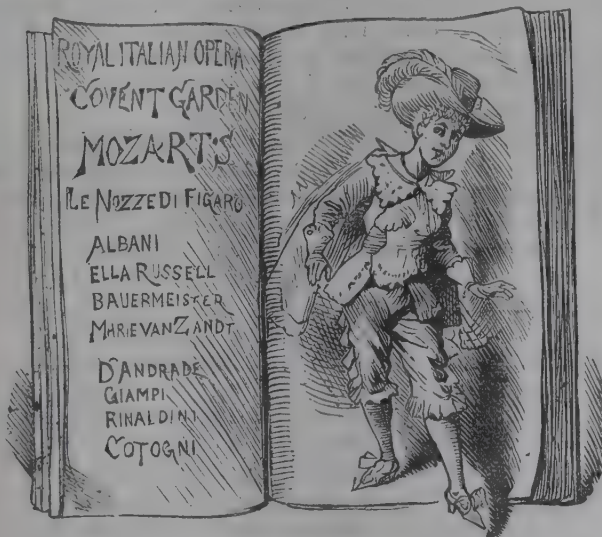 ROYAL ITALIAN OPERA
COVENT GARDEN
MOZART'S
LE NOZZE DI FIGARO
ALBANI
ELLA RUSSELL
BAUERMEISTER
MARIE VAN ZANDT
D'ANDRADE
CIAMPI
RINALDINI
COTOGNI